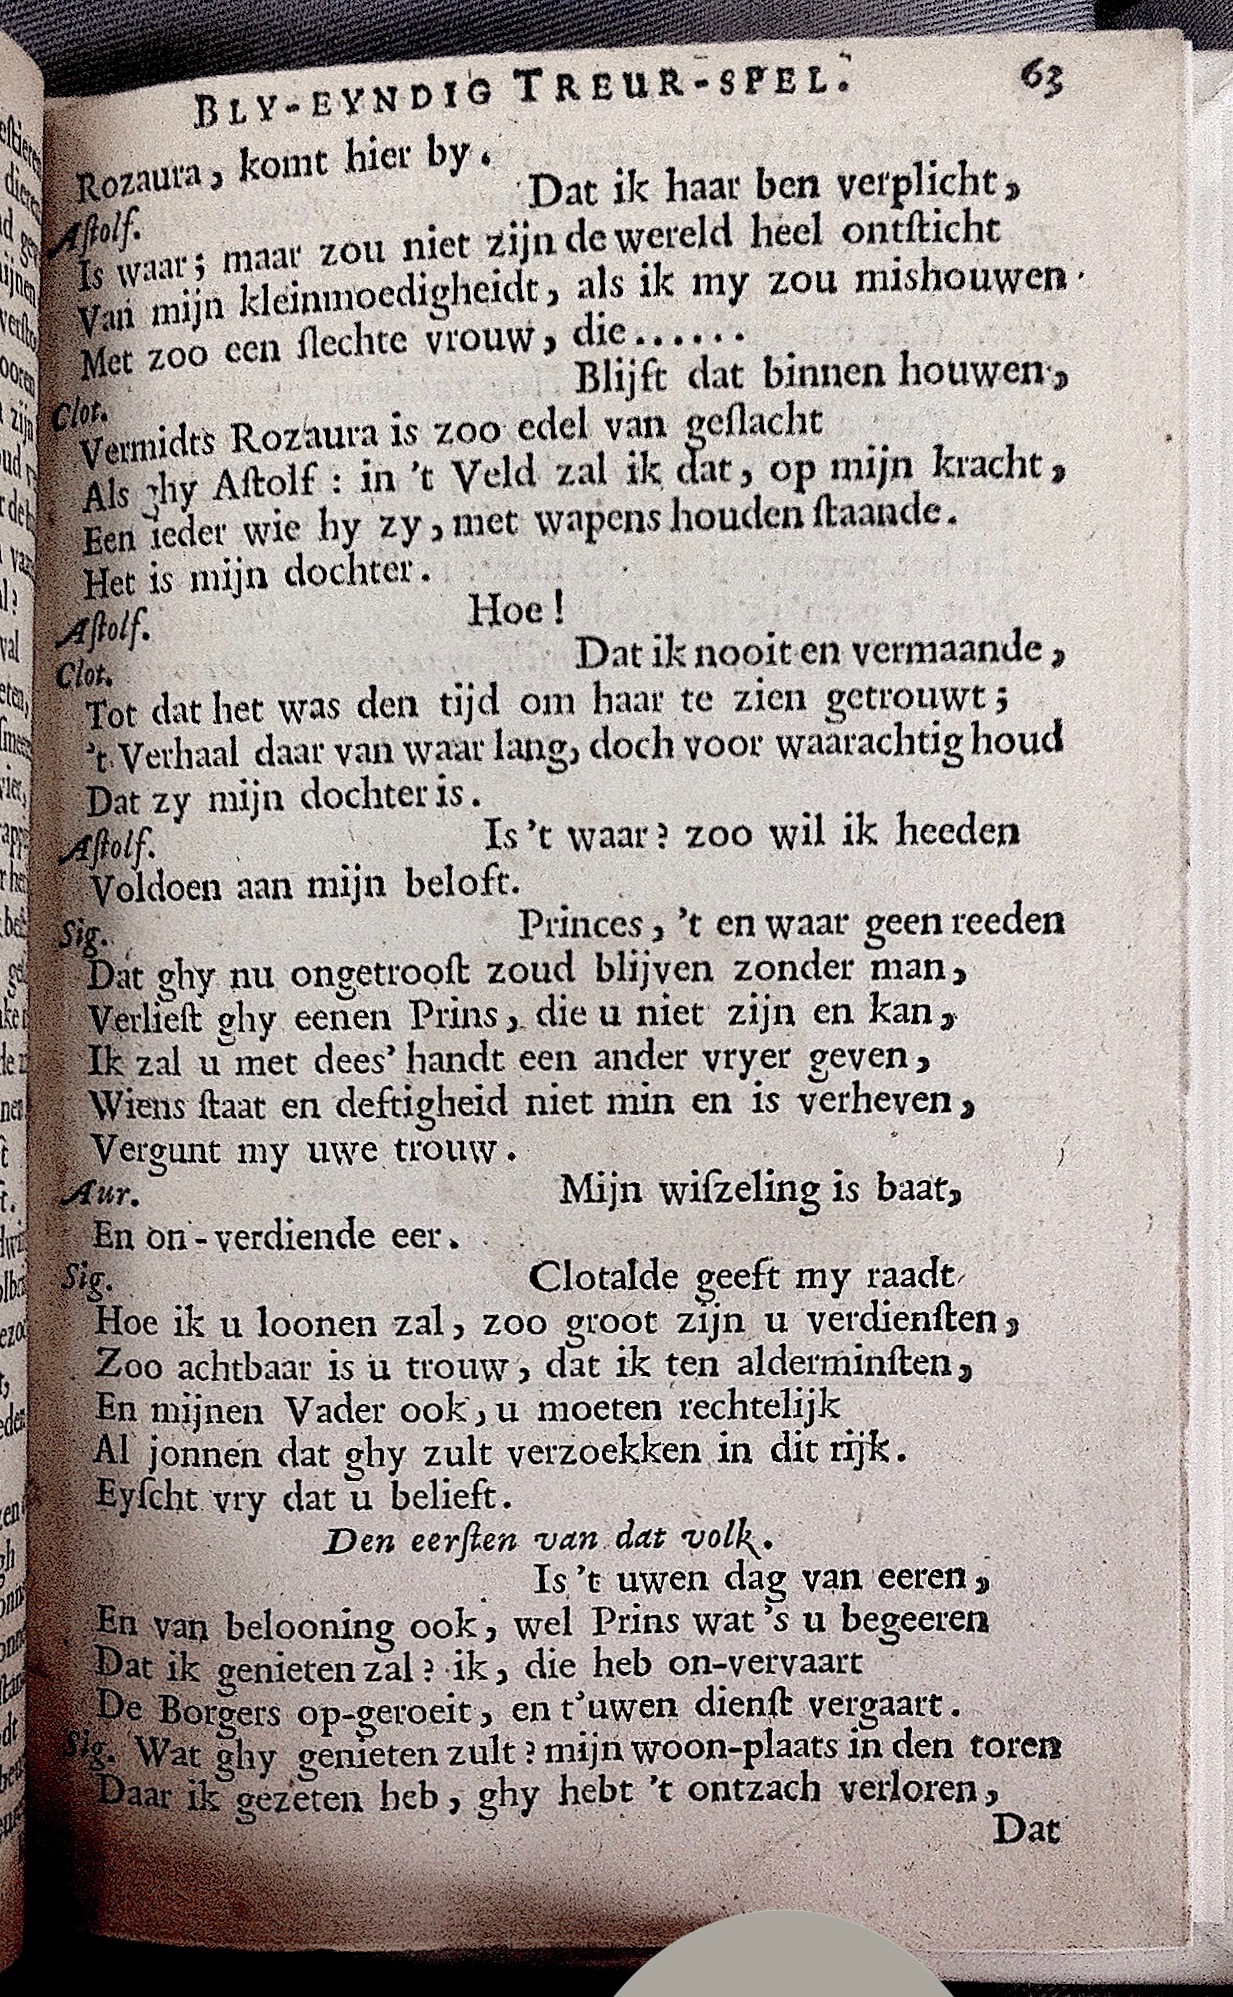 BLY-EYNDIG TREUR-SPEL. 63
Rozaura, komt hier by.
Aſtolf. Dat ik haar ben verplicht,
Is waar; maar zou niet zijn de wereld heel ontſticht
Van mijn kleinmoedigheidt, als ik my zou mishouwen
Met zoo een ſlechte vrouw, die......
Clot. Blijft dat binnen houwen,
Vermidts Rozaura is zoo edel van geſlacht
Als ghy Aſtolf: in 't Veld zal ik dat, op mijn kracht,
Een ieder wie hy zy, met wapens houden ſtaande.
Het is mijn dochter.
Aſtolf. Hoe!
Clot. Dat ik nooit en vermaande,
Tot dat het was den tijd om haar te zien getrouwt;
't Verhaal daar van waar lang, doch voor waarachtig houd
Dat zy mijn dochter is.
Aſtolf. Is 't waar? zoo wil ik heeden
Voldoen aan mijn beloft.
Sig. Princes, 't en waar geen reeden
Dat ghy nu ongetrooſt zoud blijven zonder man,
Verlieſt ghy eenen Prins, die u niet zijn en kan,
Ik zal u met dees' handt een ander vryer geven,
Wiens ſtaat en deftigheid niet min en is verheven,
Vergunt my uwe trouw.
Aur. Mijn wiſzeling is baat,
En on-verdiende eer.
Sig. Clotalde geeft my raadt
Hoe ik u loonen zal, zoo groot zijn u verdienſten,
Zoo achtbaar is u trouw, dat ik ten alderminſten,
En mijnen Vader ook, u moeten rechtelijk
Al jonnen dat ghy zult verzoekken in dit rijk.
Eyſcht vry dat u belieft.
Den eerſten van dat volk.
Is 't uwen dag van eeren,
En van belooning ook, wel Prins wat 's u begeeren
Dat ik genieten zal? ik, die heb on-vervaart
De Borgers op-geroeit, en t'uwen dienſt vergaart.
Sig. Wat ghy genieten zult? mijn woon-plaats in den toren
Daar ik gezeten heb, ghy hebt 't ontzach verloren,
Dat